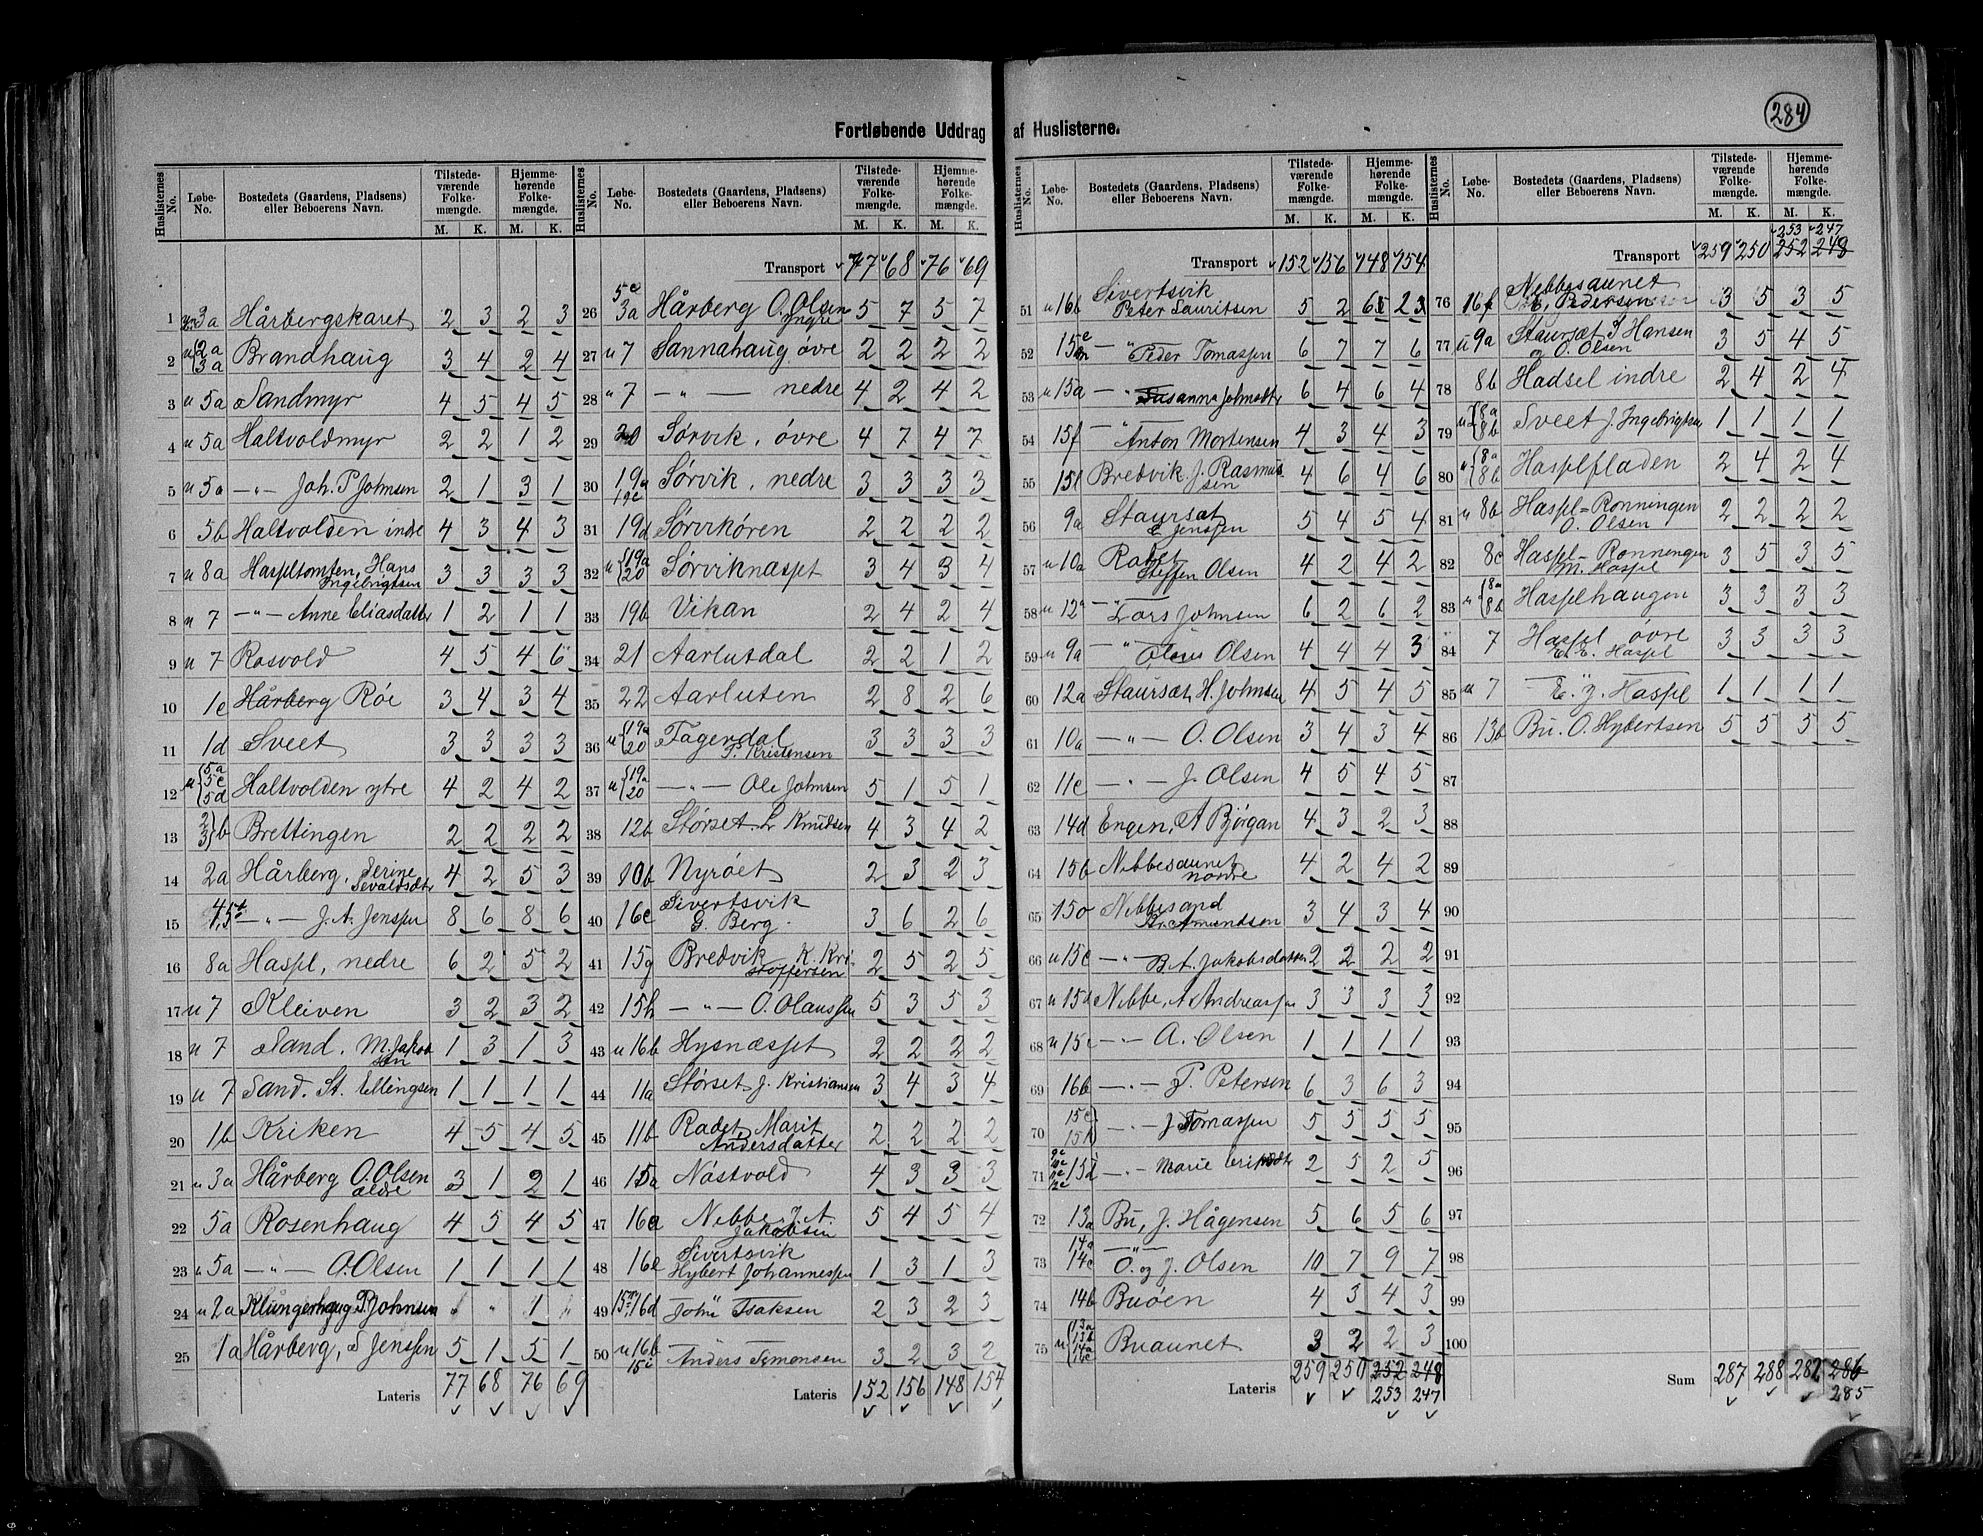 284
Fortløbende Uddrag af Huslisterne.
Huslisternes No. Løbe-No. Bostedets (Gaardens, Pladsens) eller Beboerens Navn. Tilstedeværende Folkemængde. M. K. Hjemmehørende Folkemængde. M. K.
1 3a Hårbergskaret 2 3 2 3
2 u 2a 3a Brandhaug 3 4 2 4
3 u 5a Sandmyr 4 5 4 5
4 u 5a Haltvoldmyr 2 2 1 2
5 u 5a —„— Joh. P Johnsen 2 1 3 1
6 5b Haltvolden indre 4 3 4 3
7 u 8a Haspltomten, Hans Ingebrigtsen 3 3 3 3
8 u 7 —„— Anne Eliasdatter 1 2 1 1
9 u 7 Rosvold 4 5 4 6
10 1c Hårberg Röe 3 4 3 4
11 1d Sveet 3 3 3 3
12 u 5a 5c 5d Haltvolden ytre 4 2 4 2
13 2 3 b Brettingen 2 2 2 2
14 2a Hårberg, Serine Sevaldsdtr 4 2 5 3
15 —„— J. A. Jenssen 8 6 8 6
16 8a Haspl, nedre 6 2 5 2
17 u 7 Kleiven 3 2 3 2
18 u 7 Sand. M. Jakobsen 1 3 1 3
19 u 7 Sand. St. Ellingsen 1 1 1 1
20 1b Kriken 4 5 4 5
21 u 3a Hårberg O. Olsen ældre 3 1 2 1
22 5a Rosenhaug 4 5 4 5
23 u 5a —„— O. Olsen 1 1 1 1
24 u 2a Klungerhaug P. Johnsen „ „ 1 „
25 1a Hårberg, S Jenssen 5 1 5 1
Lateris 77 68 76 69
Huslisternes No. Løbe-No. Bostedets (Gaardens, Pladsens) eller Beboerens Navn. Tilstedeværende Folkemængde. M. K. Hjemmehørende Folkemængde. M. K.
Transport 77 68 76 69
26 5c 3a Hårberg O. Olsen Yngre 5 7 5 7
27 u 7 Sannahaug övre 2 2 2 2
28 u 7 —„— nedre 4 2 4 2
29 20 Sörvik, övre 4 7 4 7
30 19a 19c Sörvik, nedre 3 3 3 3
31 19d Sörvikören 2 2 2 2
32 u 19a 20 Sörviknæsset 3 4 3 4
33 19b Vikan 2 4 2 4
34 21 Aarlutdal 2 2 1 2
35 22 Aarluten 2 8 2 6
36 u 19a 20 Fagerdal P. Kristensen 3 3 3 3
37 u 19a 20 —„— Ole Johnsen 5 1 5 1
38 12b Störset L Knudsen 4 3 4 2
39 10b Nyröet 2 3 2 3
40 16c Sivertsvik G. Berg. 3 6 2 6
41 15g Bredvik K. Kristoffersen 2 5 2 5
42 15h —„— O. Olaussen 5 3 5 3
43 u 16b Hysnæsset 2 2 2 2
44 11a Störset J. Kristiansen 3 4 3 4
45 11b Radet, Marit Andersdatter 2 2 2 2
46 15a Nöstvold 4 3 3 3
47 16a Nebbe, J. A. Jakobsen 5 4 5 4
48 16e Sivertsvik Hybert Johannessen 1 3 1 3
49 16d John Isaksen 2 3 2 3
50 u 16b 15i Anders Simonsen 3 2 3 2
Lateris 152 156 148 154
Huslisternes No. Løbe-No. Bostedets (Gaardens, Pladsens) eller Beboerens Navn. Tilstedeværende Folkemængde. M. K. Hjemmehørende Folkemængde. M. K.
Transport 152 156 148 154
51 u 16b Sivertsvik Peter Lauritsen 5 2
52 15e —„— Peder Tomassen 6 7 7 6
53 u 15a —„— Susanna Johnsdtr 6 4 6 4
54 15f —„— Anton Mortensen 4 3 4 3
55 15l Bredvik J. Rasmussen 4 6 4 6
56 9a Staursæt E Jenssen 5 4 5 4
57 u 10a Radet Steffen Olsen 4 2 4 2
58 u 12a —„— Lars Johnsen 6 2 6 2
59 u 9a —„— Olaus Olsen 4 4 4 3
60 12a Staursæt H. Johnsen 4 5 4 5
61 10a —„— O. Olsen 3 4 3 4
62 11c —„— J. Olsen 4 5 4 5
63 14d Engen, A Bjørgan 4 3 2 3
64 15b Nebbesaunet nordre 4 2 4 2
65 15o Nebbesand Kr. Amundsen 3 4 3 4
66 u 15c —„— B. A. Jakobsdatter 2 2 2 2
67 u 15d Nebbe, A. Andreassen 3 3 3 3
68 u 15c —„— A. Olsen 1 1 1 1
69 16b —„— P. Petersen 6 3 6 3
70 —„— J Tomassen 5 5 5 5
71 —„— Marie 2 5 2 5
72 13a Bu, J. Hågensen 5 6 5 6
73 14a 14c —„— O. og J. Olsen 10 7 9 7
74 14b Buöen 4 3 4 3
75 u 13a 13b 14a 14c Buaunet 3 2 2 3
Lateris 259 250 252 248
253 247
Huslisternes No. Løbe-No. Bostedets (Gaardens, Pladsens) eller Beboerens Navn. Tilstedeværende Folkemængde. M. K. Hjemmehørende Folkemængde. M. K.
253 247
Transport 259 250 252 248
76 16f Nebbesaunet Pedersen 3 5 3 5
77 u 9a Staursæt J Hansen og O. Olsen 3 5 4 5
78 8b Hadsel indre 2 4 2 4
79 u 8a 8b Sveet J. Ingebrigtsen 1 1 1 1
80 u 8a 8b Hasplfladen 2 4 2 4
81 u 8b Haspl=Rönningen O. Olsen 2 2 2 2
82 8c Haspl-Rönningen M. Haspl 3 5 3 5
83 u 8a 8b Hasplhaugen 3 3 3 3
84 7 Haspl övre E. E. Haspl 3 3 3 3
85 u 7 —„— E. J. Haspl 1 1 1 1
86 13b Bu. O. Hybertsen 5 5 5 5
87
88
89
90
91
92
93
94
95
96
97
98
99
100
Sum 287 288 282 286
285